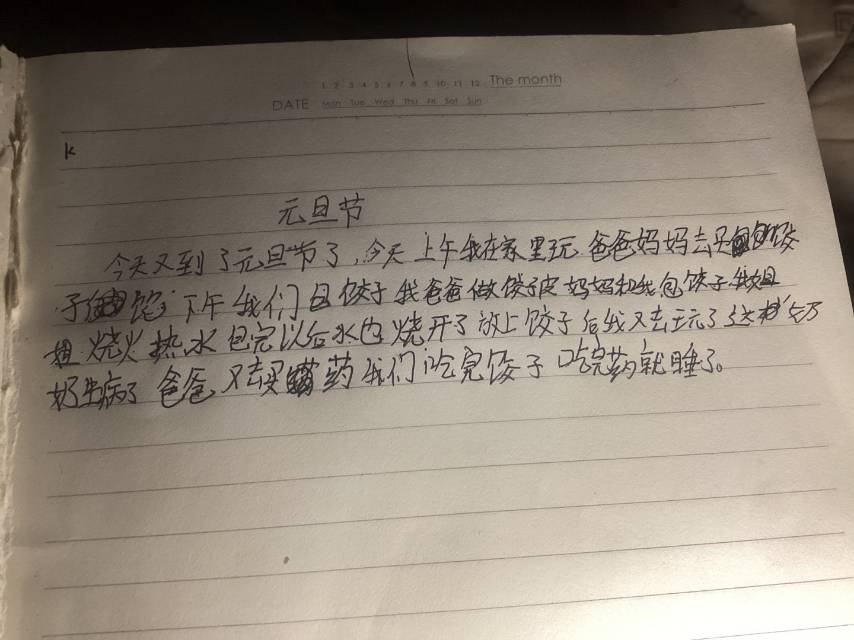 1 2 3 4 5 6 7 8 9 10 11 12 The month
DATE Mon Tue Wed Thu Fri Sat Sun
k
元旦节
今天又到了元旦节了,今天上午我在家里玩.爸爸妈妈去买饺
子馅,下午我们包饺子我爸爸做饺子皮妈妈和我包饺子.我姐
姐烧火热水包完以后水也烧开了放上饺子后我又去玩了这时奶
奶生病了爸爸又去买药我们吃完饺子吃完药就睡了。